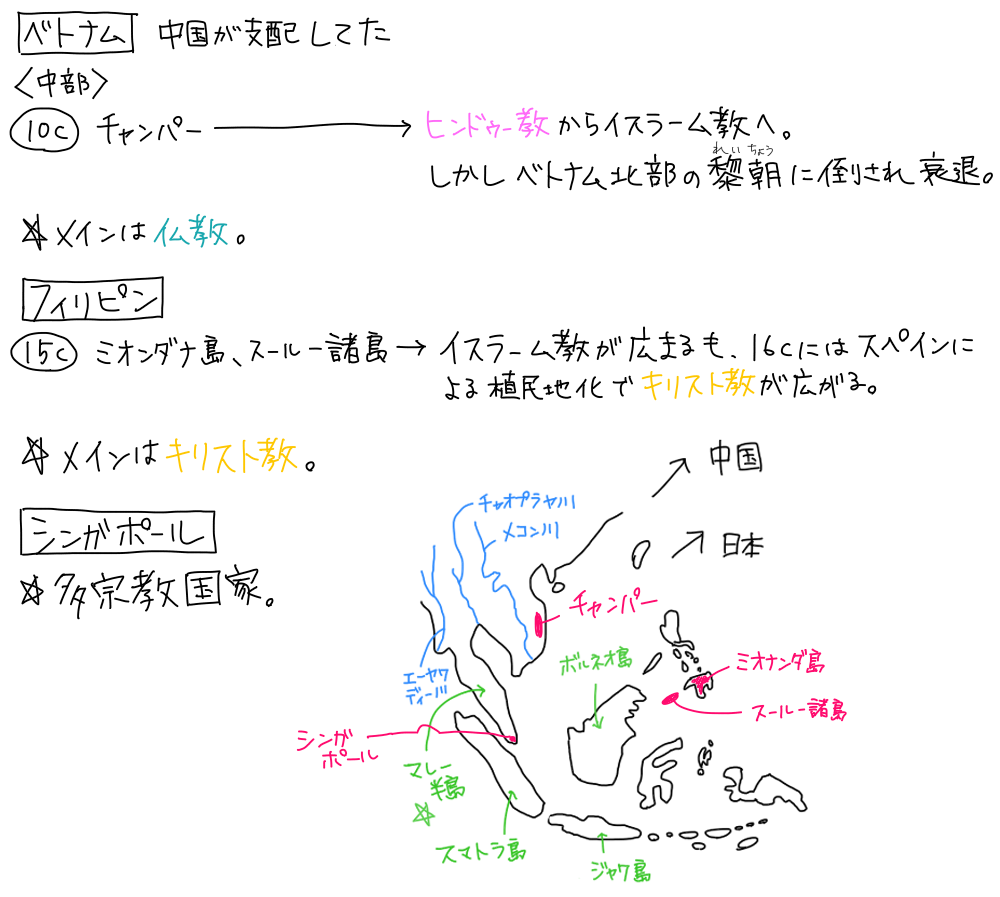 ベトナム 中国が支配してた
〈中部〉
10c チャンパー → ヒンドゥー教からイスラーム教へ。
しかしベトナム北部の黎朝に倒され衰退。
れいちょう
☆メインは仏教。
フィリピン
15c ミオンダナ島、スールー諸島→イスラーム教が広まるも、16cにはスペインに
よる植民地化でキリスト教が広がる。
☆メインはキリスト教。
シンガポール
☆多宗教国家。
中国
日本
チャオプラヤ川
メコン川
チャンパー
エーヤワ
ディー川
ボルネオ島
ミオナンダ島
スールー諸島
シンガ
ポール
マレー
半島
☆
スマトラ島
ジャワ島